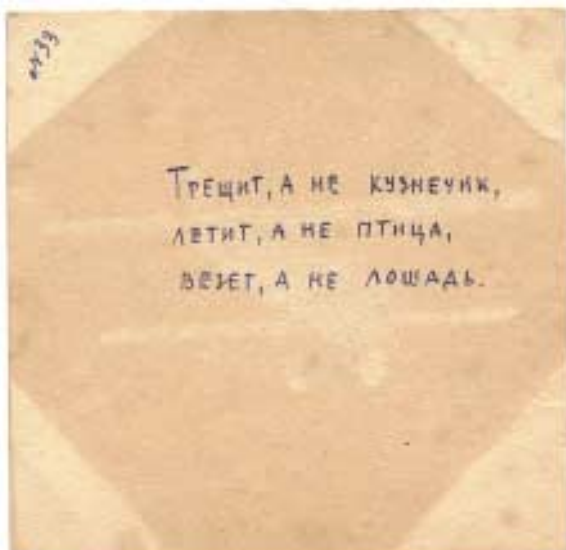 №33
Трещит, а не кузнечик,
летит, а не птица,
везет, а не лошадь.